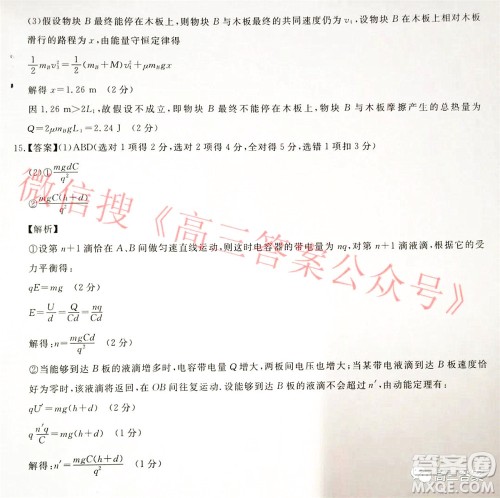 (3)假设物块 B 最终能停在木板上,则物块 B 与木板最终的共同速度仍为 v₁,设物块 B 在木板上相对木板
滑行的路程为 x,由能量守恒定律得
½m_Bv₂²=½(m_B+M)v₁²+μm_Bgx
解得 x=1.26 m (2 分)
因 1.26 m>2L₁,故假设不成立,即物块 B 最终不能停在木板上,物块 B 与木板摩擦产生的总热量为
Q=2μm_BgL₁=2.24 J (2 分)
15.【答案】(1)ABD(选对 1 项得 2 分,选对 2 项得 4 分,全对得 5 分,选错 1 项扣 3 分)
(2)①mgdC/q²
②mgC(h+d)/q²
【解析】
①设第 n+1 滴恰在 A、B 间做匀速直线运动,则这时电容器的带电量为 nq,对第 n+1 滴液滴,根据它的受
力平衡得:
qE=mg (2 分)
E=U/d=Q/Cd=nq/Cd
解得:n=mgCd/q² (2 分)
②当能够到达 B 板的液滴增多时,电容带电量 Q 增大,两板间电压也增大;当某带电液滴到达 B 板的速度
时,该液滴将在 OB 间往复运动.设能够到达 B 板的液滴不会超过 n′,由动能定理有:
qU′=mg(h+d) (2 分)
q n′q/C=mg(h+d) (1 分)
解得:n′=mgC(h+d)/q² (1 分)
微信搜《高三答案公众号》
答案圈
MXQE.COM